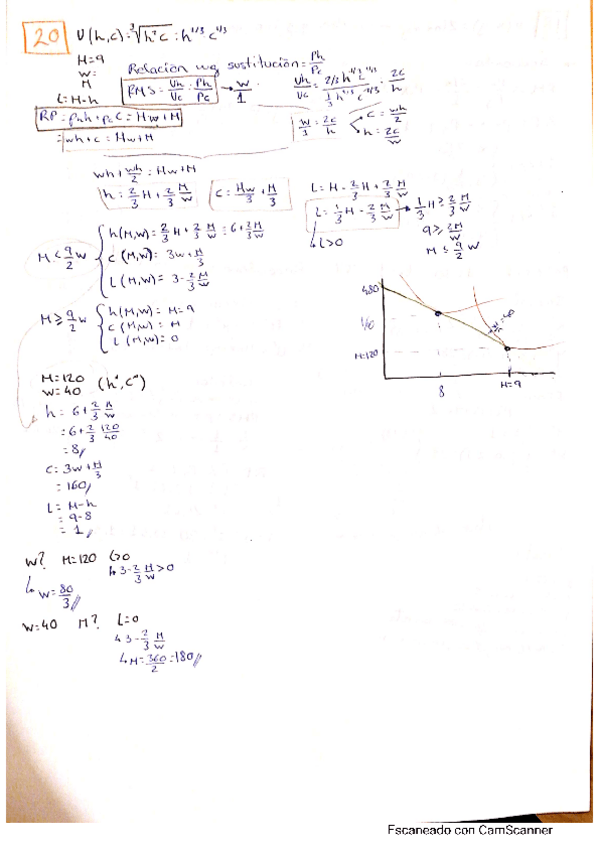 20 U(h,c) = ∛h²c : h^2/3 c^1/3
H=9
W=
M
L=H-h
Relación wg sustitución = Ph/Pc
RMS = Uh/Uc = Ph/Pc → w/1
Uh/Uc = 2/3 h^-1/3 c^1/3 / 1/3 h^2/3 c^-2/3 = 2c/h
RP = Phh + PcC = Hw + M
= wh + c = Hw + M
w/1 = 2c/h
c = wh/2
h = 2c/w
wh + wh/2 = Hw + M
h = 2/3 H + 2/3 M/w
c = Hw/3 + M/3
L = H - 2/3 H + 2/3 M/w
L = 1/3 H - 2/3 M/w → 1/3 H ≥ 2/3 M/w
↳ L>0
9 ≥ 2M/w
M ≤ 9/2 w
M < 9/2 w
h(M,w) = 2/3 H + 2/3 M/w = 6 + 2/3 M/w
c(M,w) = 3w + M/3
L(M,w) = 3 - 2/3 M/w
M ≥ 9/2 w
h(M,w) = H = 9
c(M,w) = M
L(M,w) = 0
480
160
M=120
8
H=9
M=120
W=40 (h*, c*)
h = 6 + 2/3 M/w
= 6 + 2/3 120/40
= 8
C = 3w + M/3
= 160
L = H-h
= 9-8
= 1
W? M=120 L>0
↳ 3 - 2/3 M/w > 0
↳ w = 80/3
W=40 M? L=0
↳ 3 - 2/3 M/w
↳ M = 360/2 = 180
Escaneado con CamScanner